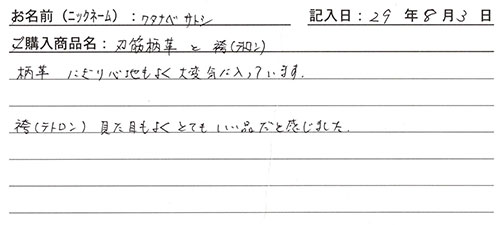 お名前（ニックネーム）：ワタナベ サトシ 記入日：29年8月3日
ご購入商品名：刃筋柄革 と 袴(テトロン)
柄革 にぎり心地もよく大変気に入っています.
袴(テトロン) 見た目もよくとてもいい品だと感じました.